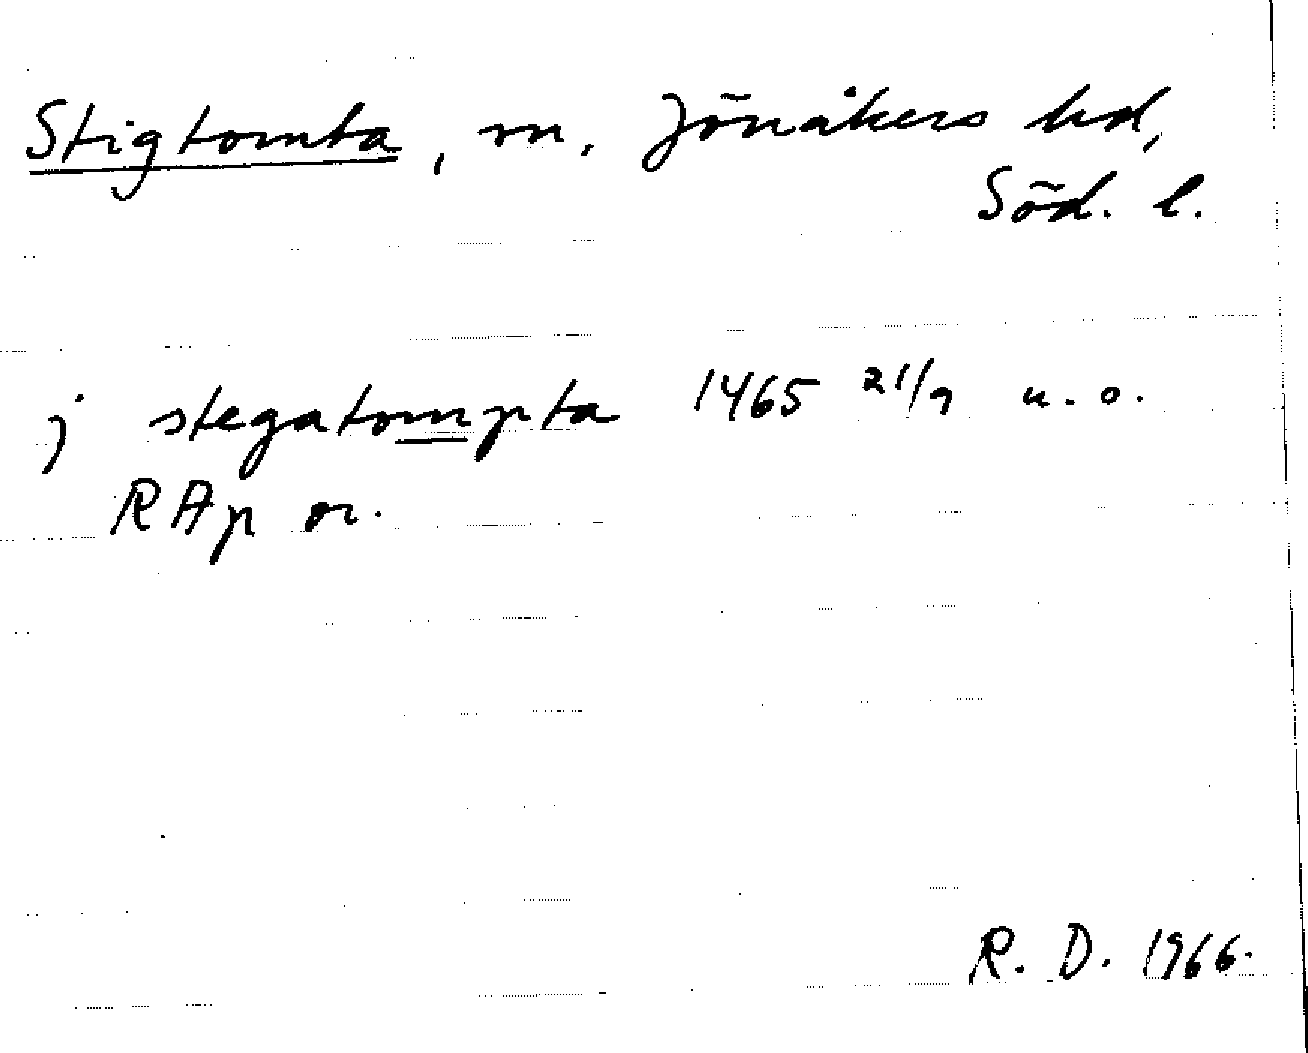 Stigtomta, sn. Jönåkers hd,
Söd. l.
j stegatompta 1465 21/9 u. o.
RAp or.
R. D. 1966.